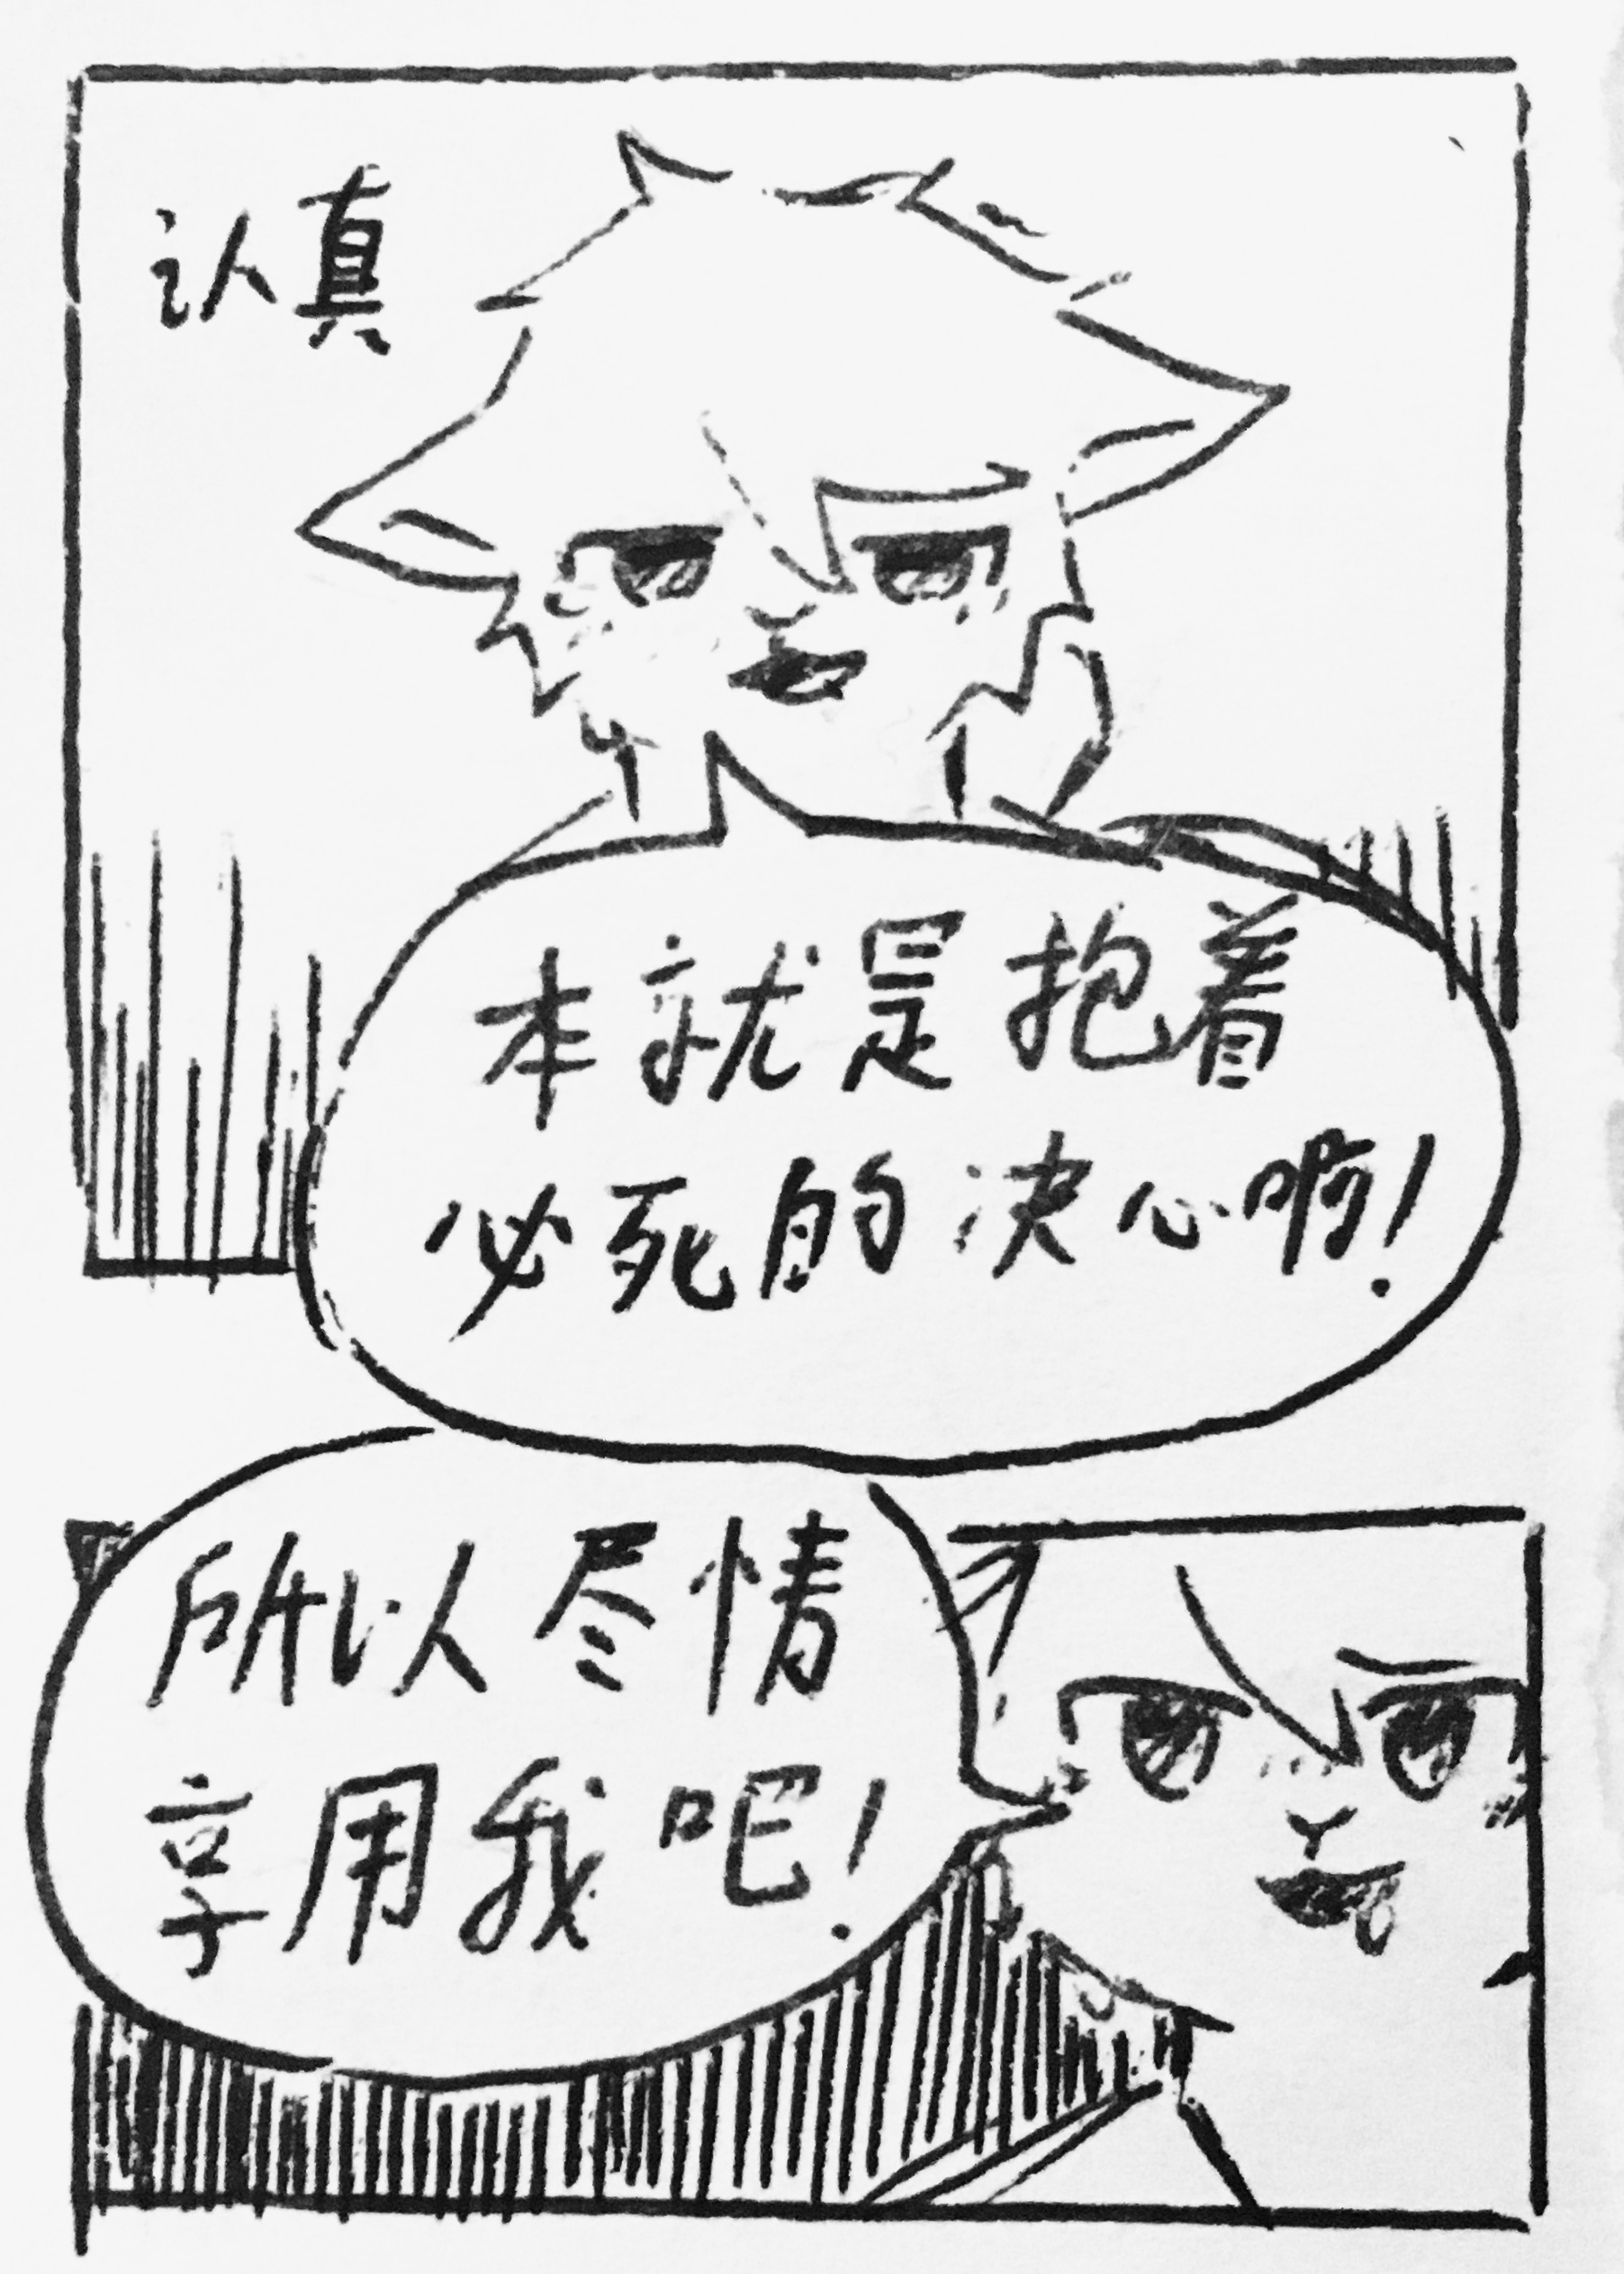 认真
本就是抱着
必死的决心啊!
所以尽情
享用我吧!